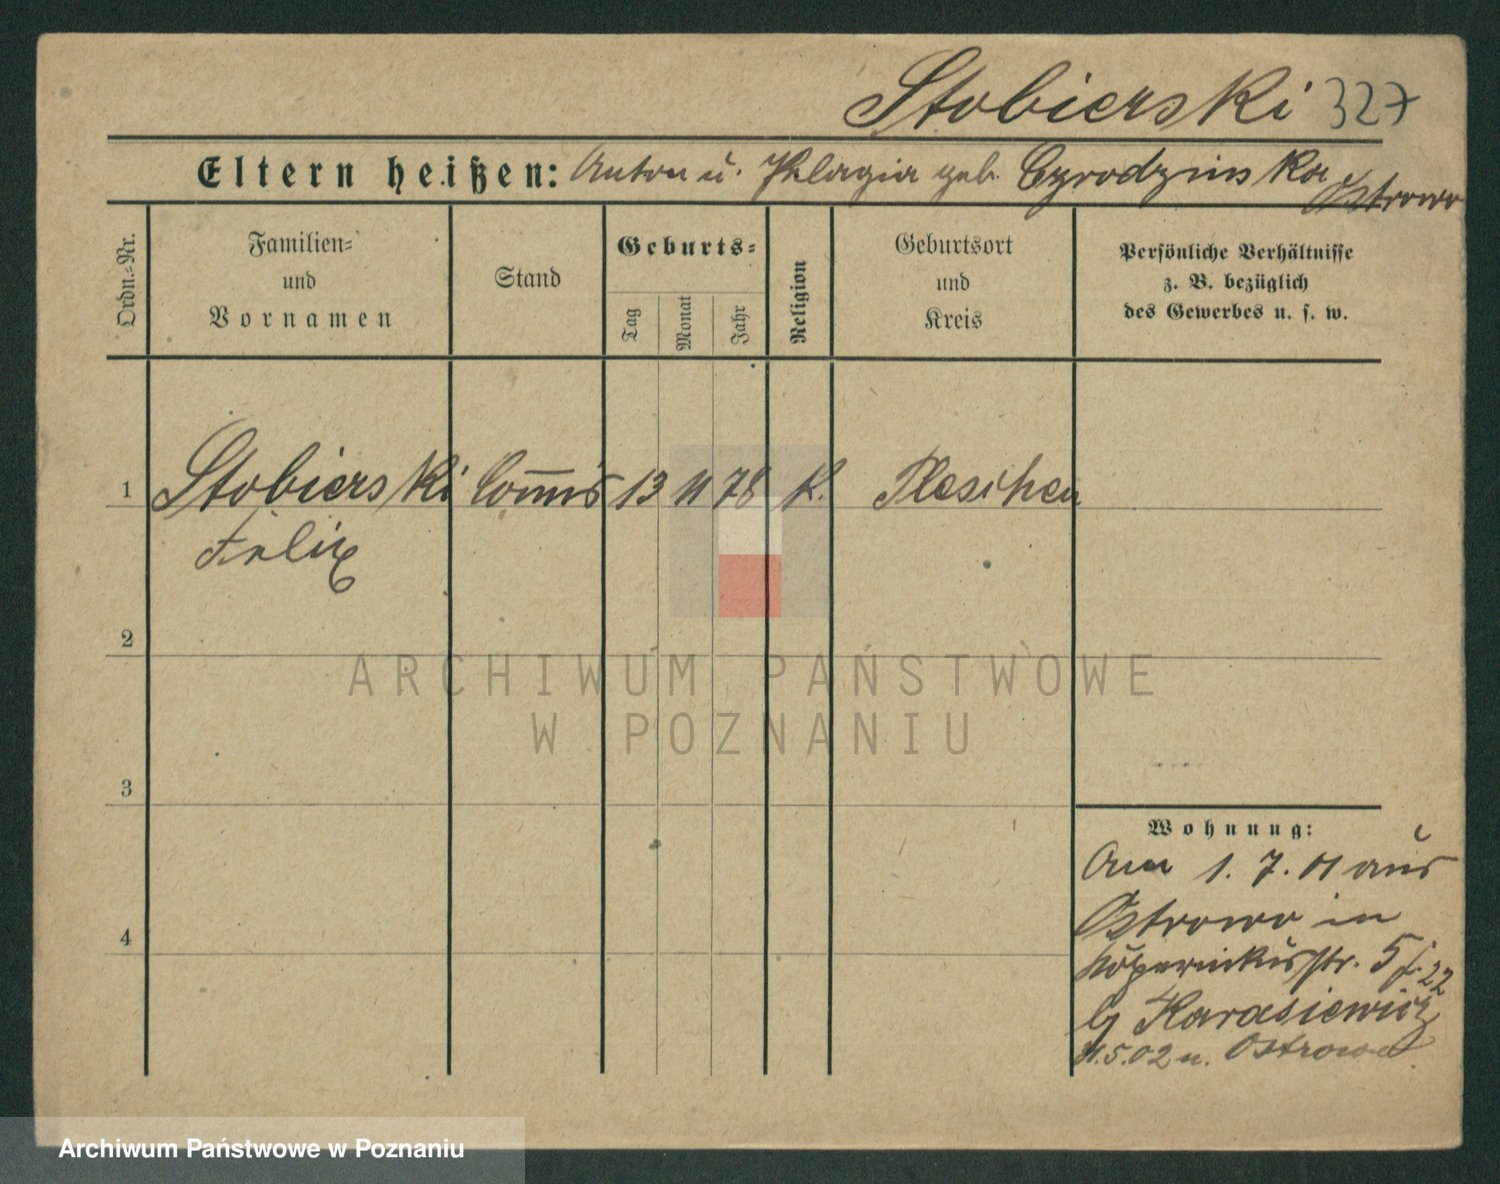 Stobierski 327
Eltern heißen: Anton u. Pelagia geb. Czrodzinska
Ostrowo
Ordn.-Nr.
Familien- und Vornamen
Stand
Geburts-
Tag
Monat
Jahr
Religion
Geburtsort und Kreis
Persönliche Verhältnisse
z. B. bezüglich
des Gewerbes u. s. w.
1 Stobierski Commis 13 11 78 K. Pleschen
Felix
2
ARCHIWUM PAŃSTWOWE
W POZNANIU
3
Wohnung:
Am 1. 7. 01 aus
4
Ostrowo in
Kopernikusstr. 5
b/ Karasiewicz
5.02 n. Ostrowo
Archiwum Państwowe w Poznaniu